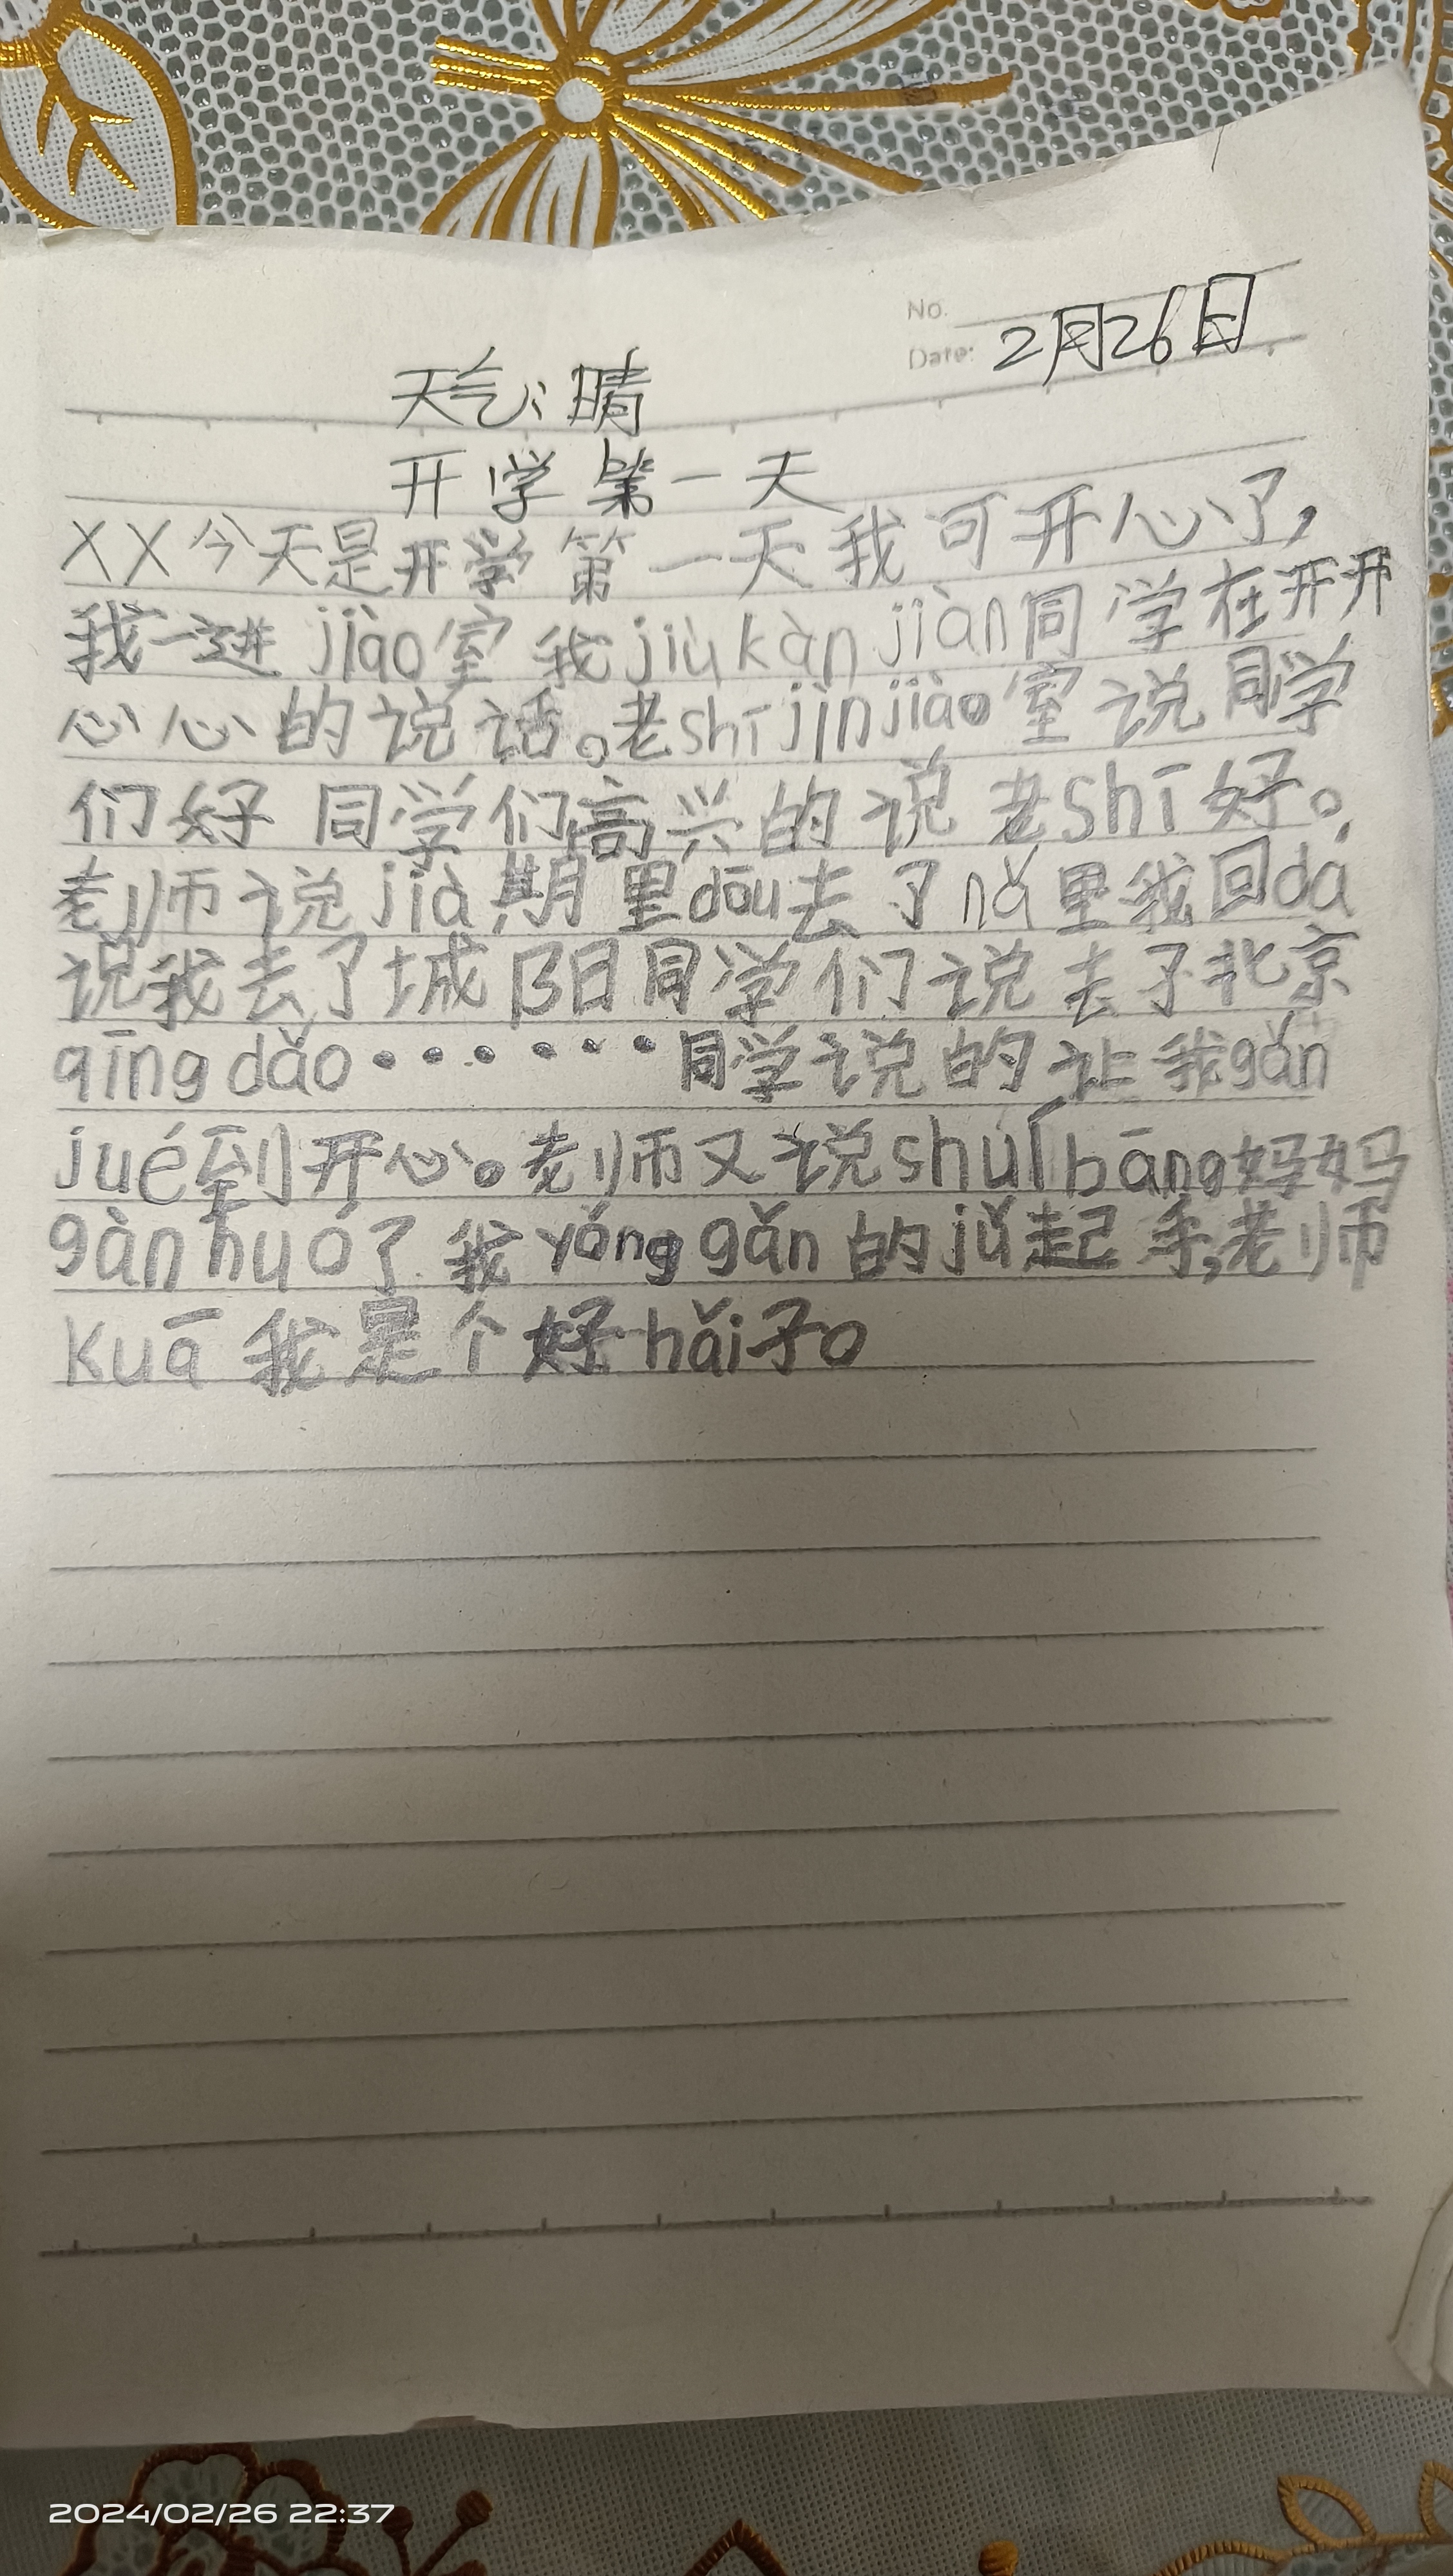 No.
Date: 2月26日
天气:晴
开学第一天
XX今天是开学第一天我可开心了,
我一进jiào室我jiùkànjiàn同学在开开
心心的说话。老shījìnjiào室说同学
们好同学们高兴的说老shī好。
老师说jià期里dōu去了nǎ里我回dá
说我去了城阳同学们说去了北京
qīngdǎo·······同学说的让我gǎn
jué到开心。老师又说shuíbāng妈妈
gànhuó了我yǒnggǎn的jǔ起手,老师
kuā我是个好hǎi子。
2024/02/26 22:37